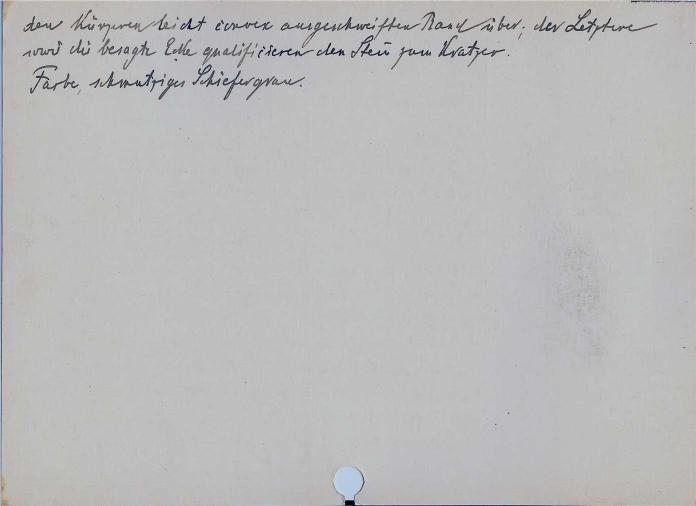 den kürzeren leicht convex ausgeschweiften Rand über; der Letztere
sowie die besagte Ecke qualificieren den Stein zum Kratzer.
Farbe, schmutziges Schiefergrau.